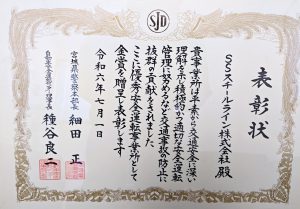 SJD
表彰状
SSスチールライン株式会社 殿
貴事業所は平素から交通安全に深い
理解を示し積極的かつ適切な安全運転
管理に努めるなど交通事故の防止に
抜群の貢献をされました
ここに優秀安全運転事業所として
金賞を贈呈し表彰します
令和六年七月一日
宮城県警察本部長
細田 正
自動車安全運転センター理事長
種谷良二